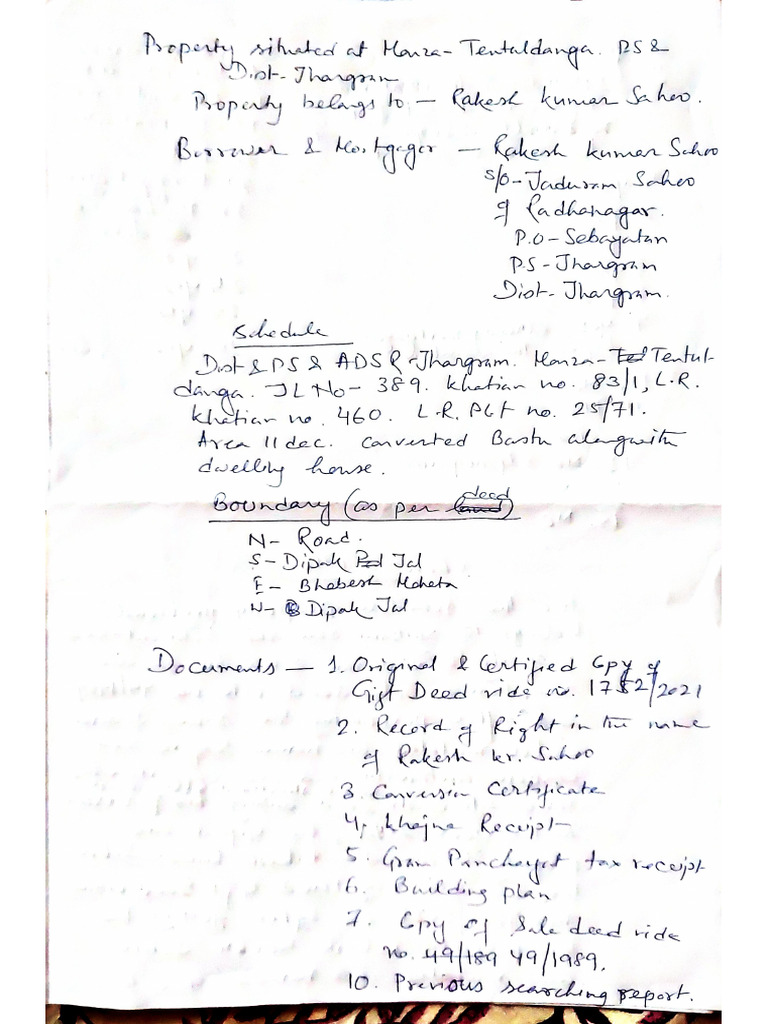 Property situated at Mouza- Tentuldanga. PS &
Dist- Jhargram
Property belongs to — Rakesh Kumar Sahoo.
Borrower & Mortgagor — Rakesh Kumar Sahoo
S/o- Jaduram Sahoo
of Radhanagar.
P.O- Sebayatan
P.S- Jhargram
Dist- Jhargram.
Schedule
Dist & PS & ADSR-Jhargram. Mouza- Tentul-
danga. JL No- 389. Khatian no. 83/1, L.R.
Khatian no. 460. L.R. Plot no. 25/71.
Area 11 dec. converted Bastu alongwith
dwelling house.
Boundary (as per deed)
N- Road.
S- Dipak Jal
E- Bhabesh Mahata
W- Dipak Jal
Documents — 1. Original & Certified Copy of
Gift Deed vide no. 1752/2021
2. Record of Right in the name
of Rakesh kr. Sahoo
3. Conversion Certificate
4. Khajna Receipt
5. Gram Panchayet tax receipt
6. Building plan
7. Copy of Sale deed vide
no. 49/189 49/1989.
10. Previous searching report.